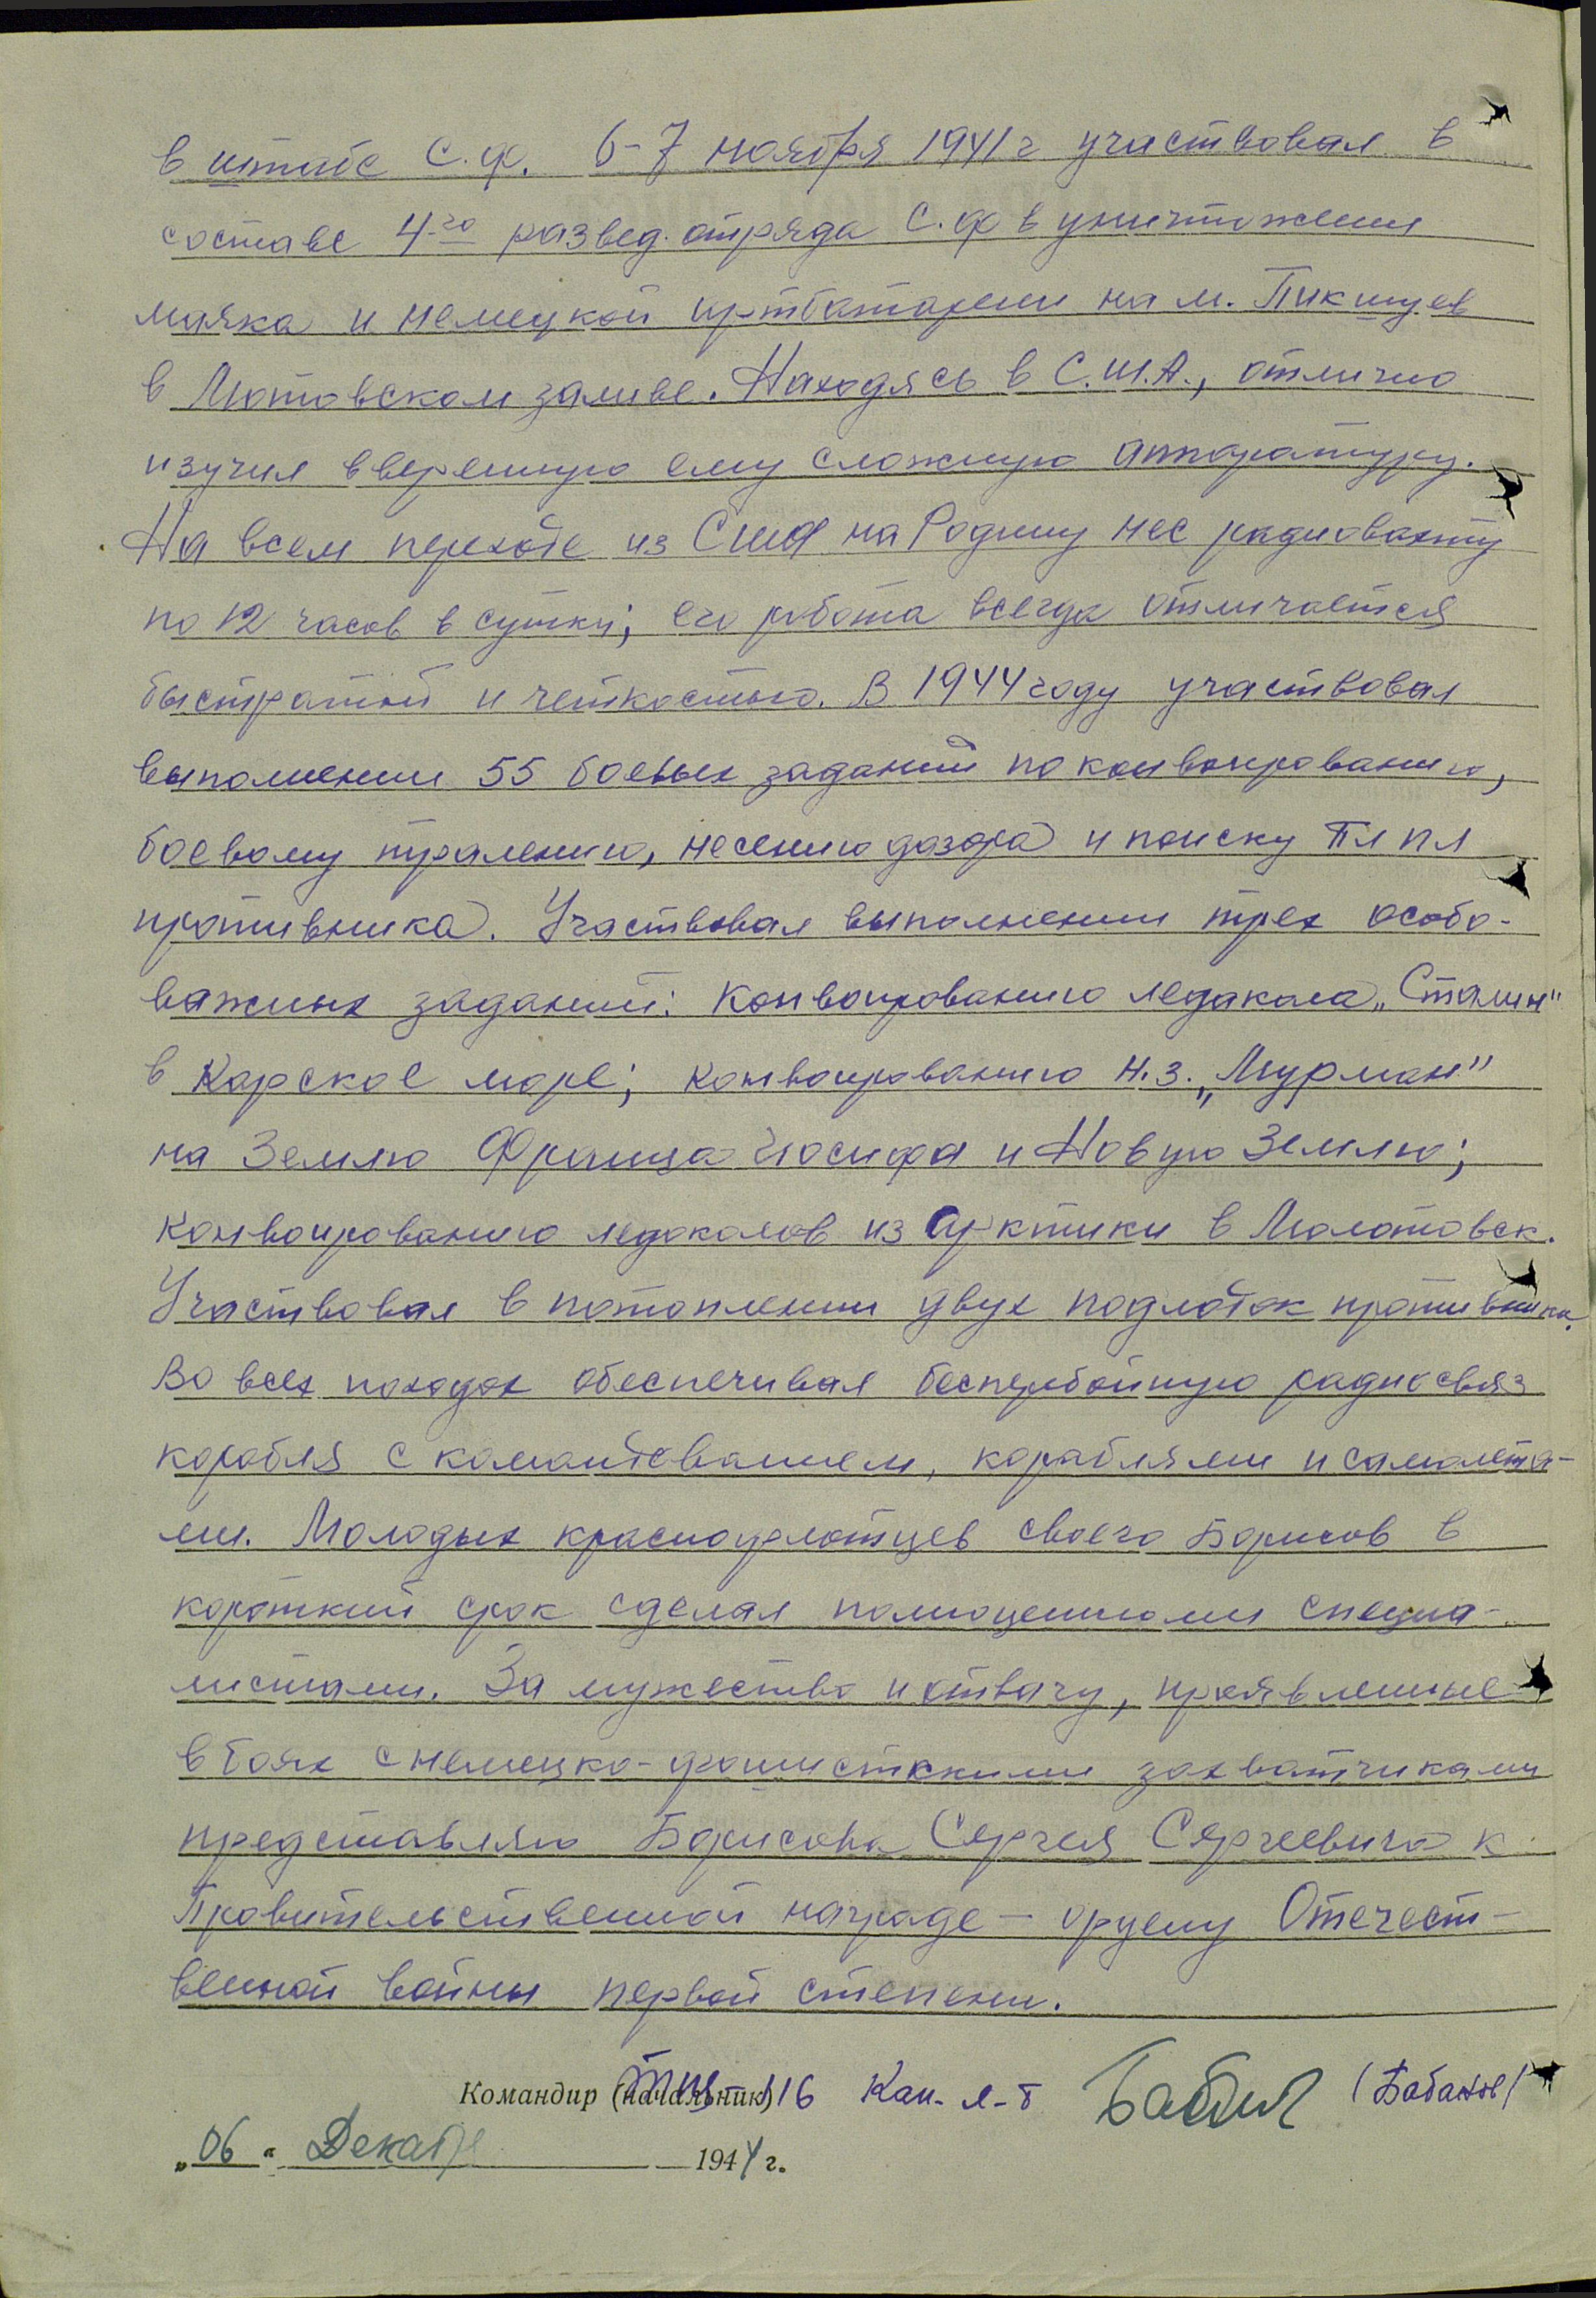 в штабе С.Ф. 6-7 ноября 1941 г участвовал в
составе 4го развед. отряда С.Ф в уничтожении
маяка и немецкой артбатареи на м. Пикшуев
в Мотовском заливе. Находясь в С.Ш.А., отлично
изучил вверенную ему сложную аппаратуру.
На всем переходе из США на Родину нес радиовахту
по 12 часов в сутки; его работа всегда отличается
быстратой и четкостью. В 1944 году участвовал
выполнении 55 боевых заданий по конвоированию,
боевому тралению, несению дозора и поиску ПЛ ПЛ
противника. Участвовал выполнении трех особо-
важных заданий: конвоированию ледакола „Сталин"
в Карское море; конвоированию н.з. „Мурман"
на Землю Франца Иосифа и Новую Землю;
конвоированию ледоколов из Арктики в Молотовск.
Участвовал в потоплении двух подлодок противника.
Во всех походах обеспечивал бесперебойную радиосвяз
корабля с командованием, кораблями и самолета-
ми. Молодых краснофлотцев своего Борисов в
короткий срок сделал полноценными специа-
листами. За мужество и отвагу, проявленные
в боях с немецко-фашистскими захватчиками
представляю Борисова Сергея Сергеевича к
Правительственной награде - ордену Отечест-
венной войны первой степени.
Командир (начальник) 116 Кап-л-т (Бабанов)
„06" Декабр 1944 г.